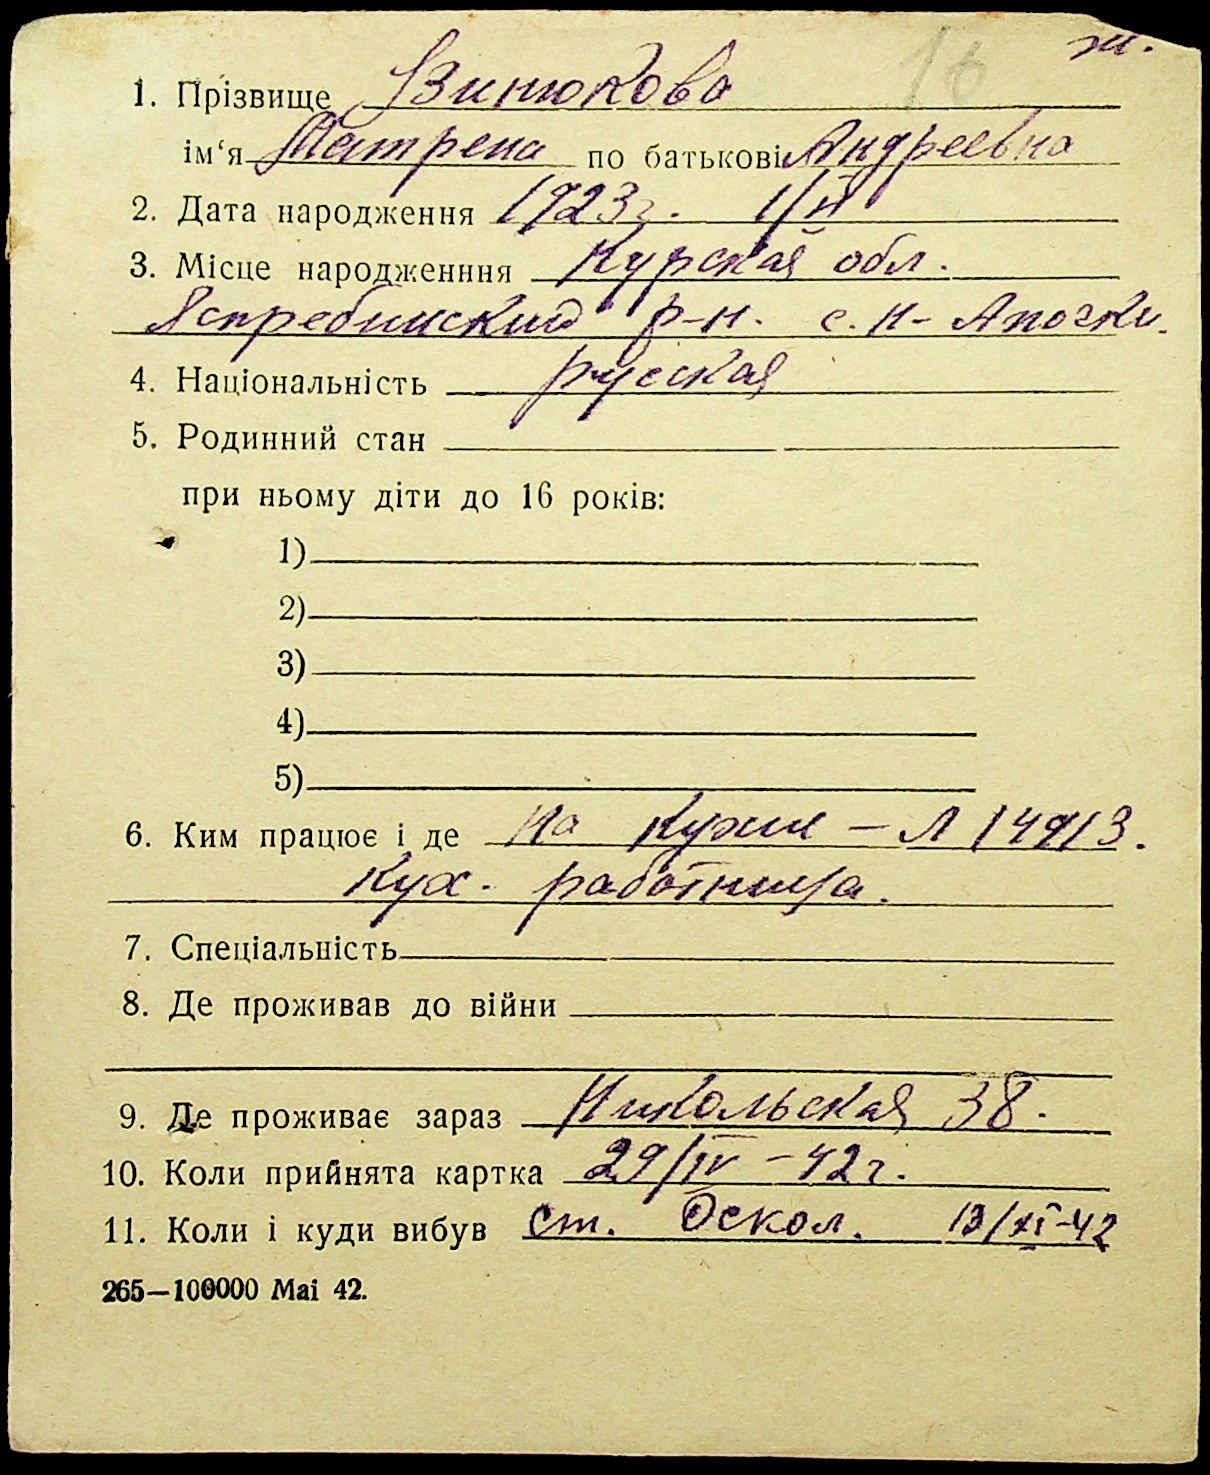 16 ж.
1. Прізвище Винюкова
ім‘я Матрена по батькові Андреевна
2. Дата народження 1923г. 1/II
3. Місце народженння Курская обл.
Ястребинский р-н. с. Н- Апочки.
4. Національність русская
5. Родинний стан
при ньому діти до 16 років:
1)
2)
3)
4)
5)
6. Ким працює і де На кухне – Л 14913.
Кух. работница.
7. Спеціальність
8. Де проживав до війни
9. Де проживає зараз Никольская 38.
10. Коли прийнята картка 29/IV – 42 г.
11. Коли і куди вибув ст. Оскол. 13/XI-42
265—100000 Mai 42.